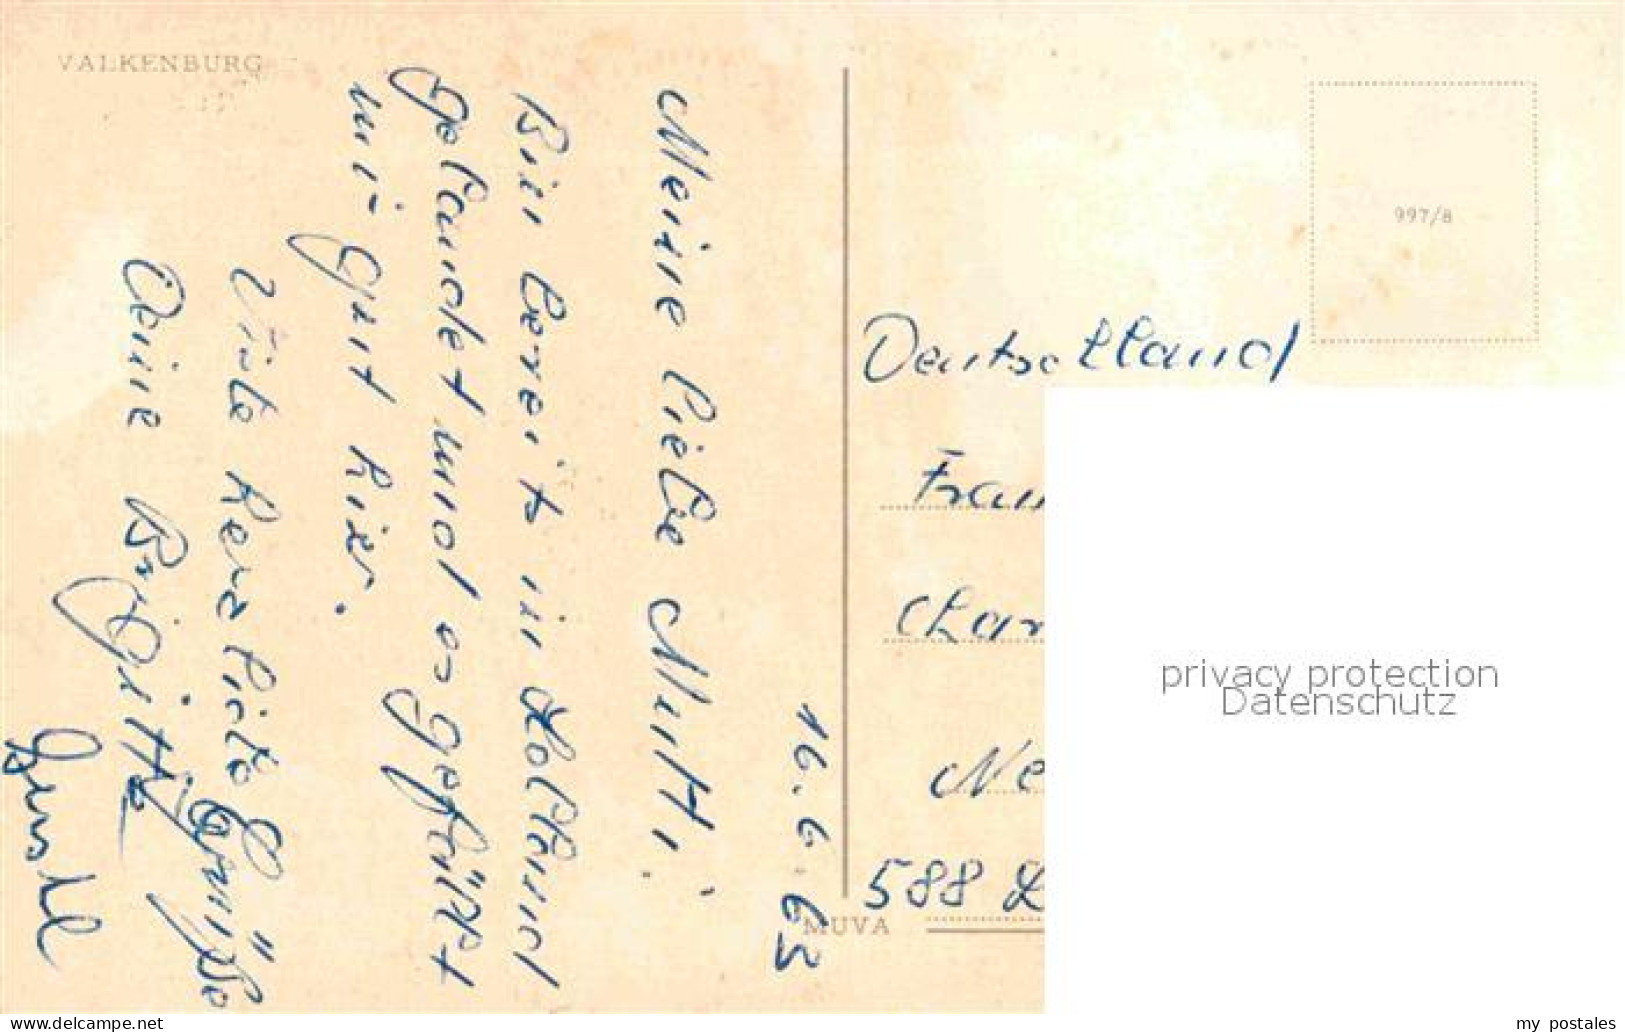 VALKENBURG
997/8
16.6.63
Meine liebe Mutti!
Bin bereits in Holland
gelandet und es gefällt
mir gut hier.
Viele herzliche Grüße
Deine Brigitte
Deutschland
Frau
Char
Ne
588 L
MUVA
privacy protection
Datenschutz
my_postales
www.delcampe.net